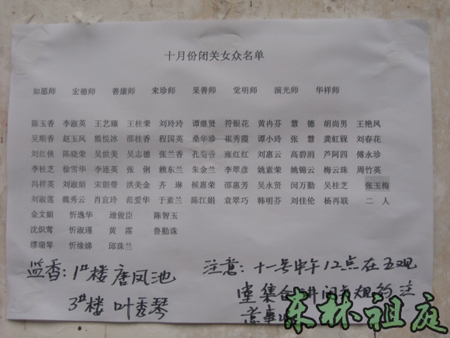 十月份闭关女众名单
如愿师 宏德师 善康师 来珍师 果善师 觉明师 演光师 华祥师
陈玉香 李淑英 王艺臻 王桂荣 刘玲玲 谭继贤 符银花 黄冉芬 慧德 胡尚男 王艳风
吴顺香 赵玉凤 熊悦冰 邵桂香 程国英 桑华珍 崔秀霞 谭小玲 张慧 龚虹霞 刘春花
刘红侠 陈晓荣 吴世美 吴志德 张兰香 孔菊香 雍红红 刘惠云 高碧雨 芦阿四 傅永珍
李桂芝 徐雪华 李廷英 张俐 赖东兰 朱金兰 李翠彦 姚素荣 姚锦云 梅云珠 周竹英
冯祥英 刘淑娟 宋朝带 洪美金 齐琳 候嘉荣 邵惠芳 吴水贤 闵万勤 吴桂芝 张玉梅
刘淑莲 魏秀云 肖宜玲 范爱华 于素兰 陈江娟 袁翠巧 韩明芬 刘佳伦 杨再联 二人
金文娟 忻逸华 涂俊臣 陈智玉
沈炽莺 忻淑瑾 黄露 鲁勤珠
缪瑞琴 忻缘娣 邱珠兰
监香：1#楼 唐凤池
3#楼 叶秀琴
注意：十一号中午12点在五观
堂集合 讲闭关规约 注
意事
东林祖庭